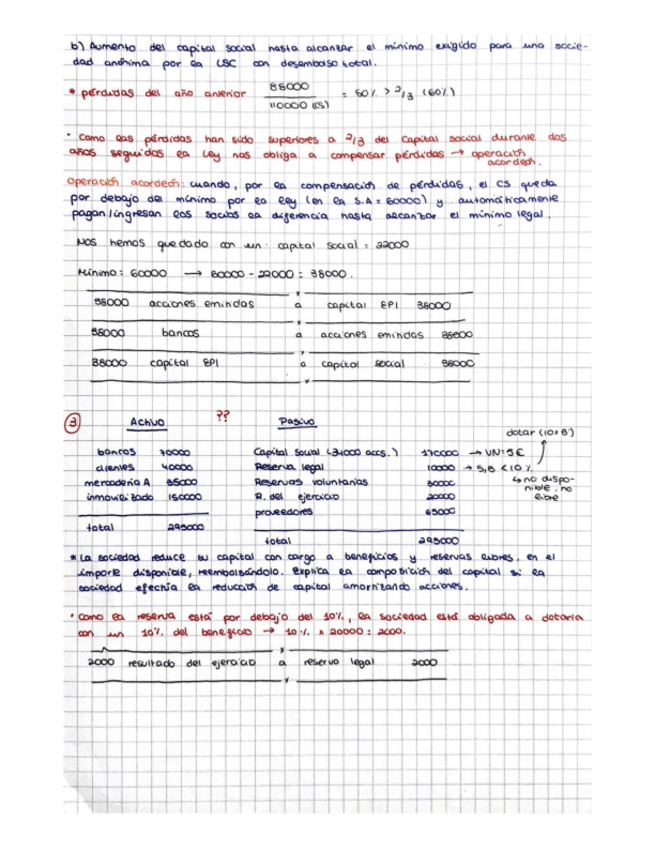 b) Aumento del capital social hasta alcanzar el mínimo exigido para una socie-
dad anónima por la LSC con desembolso total.
* pérdidas del año anterior 88000 / 110000 (CS) = 80% > 2/3 (60%)
· Como las pérdidas han sido superiores a 2/3 del Capital social durante dos
años seguidos la ley nos obliga a compensar pérdidas → operación
acordeón.
Operación acordeón: cuando, por la compensación de pérdidas, el CS queda
por debajo del mínimo por la ley (en la S.A = 60000) y automáticamente
pagan/ingresan los socios la diferencia hasta alcanzar el mínimo legal.
Nos hemos quedado con un capital social = 22000
Mínimo: 60000 → 60000 - 22000 = 38000.
38000 acciones emitidas a capital EPI 38000
38000 bancos a acciones emitidas 38000
38000 capital EPI a capital social 38000
3 Activo ?? Pasivo
dotar (10% Bº)
bancos 70000 Capital social (34000 accs.) 170000 → VN=5€
clientes 40000 Reserva legal 10000 → 5,8 < 10%
mercadería A 35000 Reservas voluntarias 30000 ↳ no dispo-
nible, no
libre
inmovilizado 150000 R. del ejercicio 20000
proveedores 65000
total 295000
total 295000
* La sociedad reduce su capital con cargo a beneficios y reservas libres, en el
importe disponible, reembolsándolo. Explica la composición del capital si la
sociedad efectúa la reducción de capital amortizando acciones.
· Como la reserva está por debajo del 10%, la sociedad está obligada a dotarla
con un 10% del beneficio → 10% x 20000 = 2000.
2000 resultado del ejercicio a reserva legal 2000